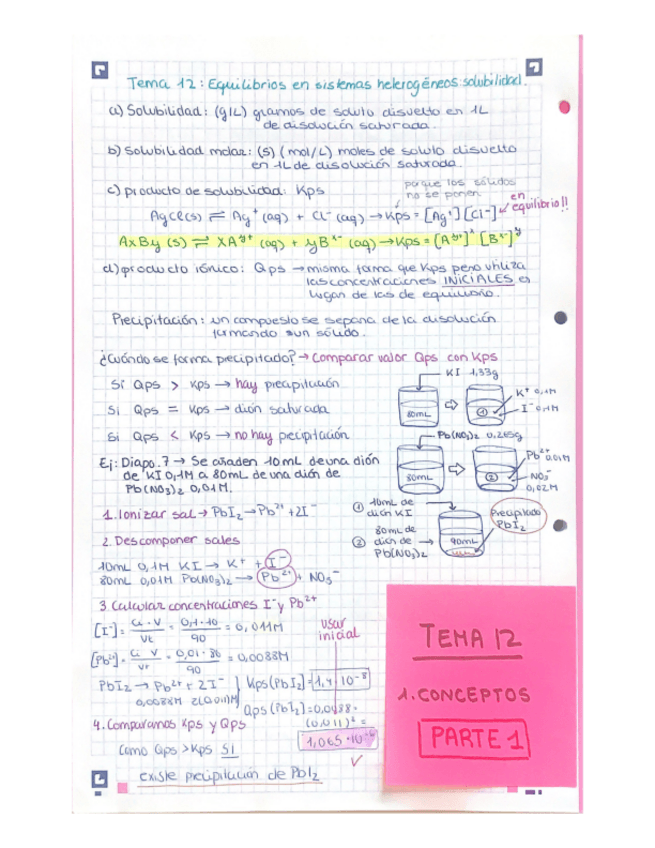 Tema 12: Equilibrios en sistemas heterogéneos: solubilidad.
a) Solubilidad: (g/L) gramos de soluto disuelto en 1L
de disolución saturada.
b) Solubilidad molar: (s) (mol/L) moles de soluto disuelto
en 1L de disolución saturada.
c) producto de solubilidad: Kps
porque los sólidos
no se ponen
AgCl(s) ⇌ Ag⁺ (aq) + Cl⁻ (aq) → Kps = [Ag⁺] [Cl⁻]
en
equilibrio!!
AxBy (s) ⇌ XAʸ⁺ (aq) + yBˣ⁻ (aq) → Kps = [Aʸ⁺]ˣ [Bˣ⁻]ʸ
d) producto iónico: Qps → misma forma que Kps pero utiliza
las concentraciones INICIALES en
lugar de las de equilibrio.
Precipitación: un compuesto se separa de la disolución
formando un sólido.
¿Cuándo se forma precipitado? → Comparar valor Qps con Kps
Si Qps > Kps → hay precipitación
Si Qps = Kps → dión saturada
Si Qps < Kps → no hay precipitación
KI 1,33g
80mL
①
K⁺ 0,1M
I⁻ 0,1M
Pb(NO₃)₂ 0,265g
80mL
②
Pb²⁺ 0,01M
NO₃⁻
0,02M
Ej: Diapo. 7 → Se añaden 10mL de una dión
de KI 0,1M a 80mL de una dión de
Pb(NO₃)₂ 0,01M.
① 10mL de
dión KI
② 80mL de
dión de
Pb(NO₃)₂
90mL
Precipitado
PbI₂
1. Ionizar sal → PbI₂ → Pb²⁺ + 2I⁻
2. Descomponer sales
10mL 0,1M KI → K⁺ + I⁻
80mL 0,01M Pb(NO₃)₂ → Pb²⁺ + NO₃⁻
3. Calcular concentraciones I⁻ y Pb²⁺
[I⁻] = Ci · V / Vt = 0,1 · 10 / 90 = 0,011M
usar
inicial
[Pb²⁺] = Ci V / Vt = 0,01 · 80 / 90 = 0,0088M
PbI₂ → Pb²⁺ + 2I⁻
0,0088M 2(0,011)M
Kps (PbI₂) = 1,4 · 10⁻⁸
Qps (PbI₂) = 0,0088 ·
(0,011)² =
1,065 · 10⁻⁶
4. Comparamos Kps y Qps
Como Qps > Kps SI
existe precipitación de PbI₂
TEMA 12
1. CONCEPTOS
PARTE 1